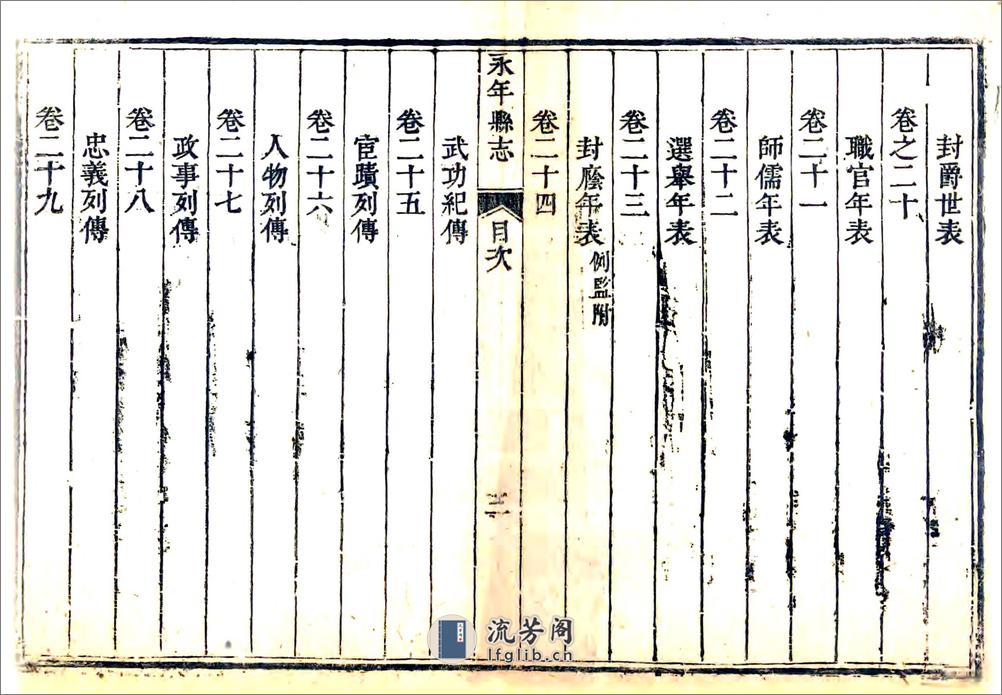 封爵世表
卷之二十
職官年表
卷二十一
師儒年表
卷二十二
選舉年表
卷二十三
封廕年表 例監附
卷二十四
永年縣志
目次
三
武功紀傳
卷二十五
宦蹟列傳
卷二十六
人物列傳
卷二十七
政事列傳
卷二十八
忠義列傳
卷二十九
流芳阁
lfglib.cn